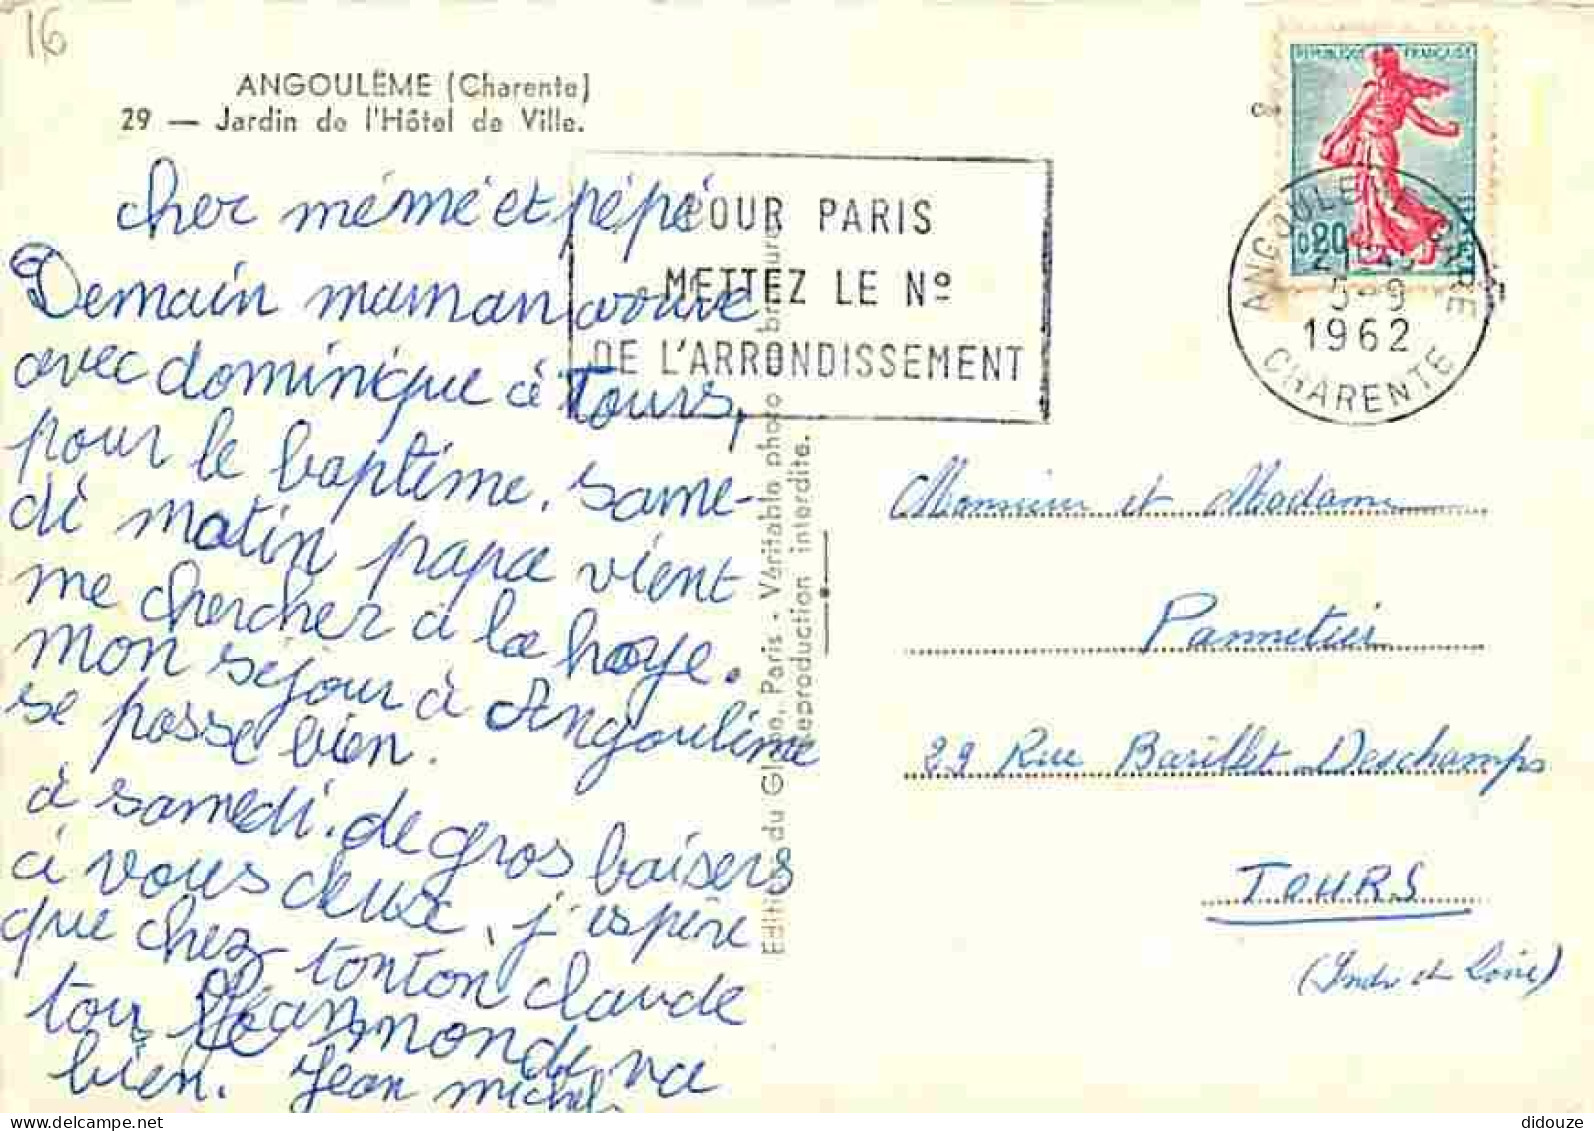 16
ANGOULÊME (Charente)
29 — Jardin de l'Hôtel de Ville.
cher mémé et pépé
Demain maman arrive
avec dominique à Tours,
pour le baptême. same-
di matin papa vient
me chercher à la haye.
Mon séjour à Angoulême
se passe bien.
à samedi. de gros baisers
à vous deux, j'espère
que chez tonton claude
tou le monde va
bien. Jean michel
POUR PARIS
METTEZ LE Nº
DE L'ARRONDISSEMENT
REPUBLIQUE FRANÇAISE
0,20
ANGOULEME GARE
1962
CHARENTE
Editions du Globe, Paris - Véritable photo bromure
Reproduction interdite.
Monsieur et Madame
Pannetier
29 Rue Barillet Deschamps
TOURS
(Indre et Loire)
didouze @ delcampe.net